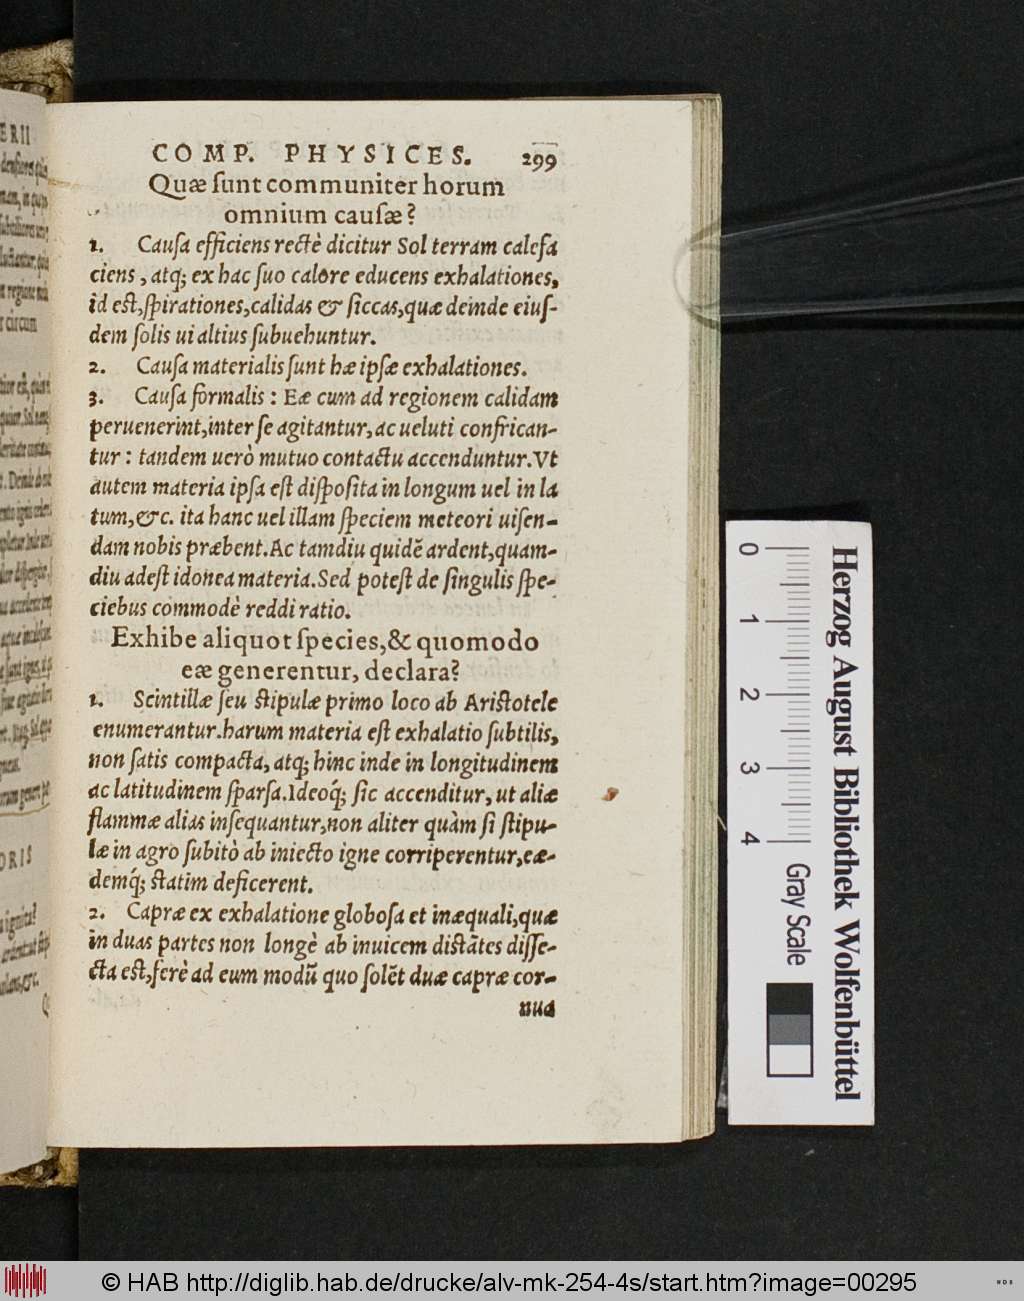 COMP. PHYSICES. 299
Quæ ſunt communiter horum
omnium cauſæ?
1. Cauſa efficiens rectè dicitur Sol terram calefa
ciens, atq; ex hac ſuo calore educens exhalationes,
id eſt, ſpirationes, calidas & ſiccas, quæ deinde eiuſ-
dem ſolis ui altius ſubuehuntur.
2. Cauſa materialis ſunt hæ ipſæ exhalationes.
3. Cauſa formalis: Eæ cum ad regionem calidam
peruenerint, inter ſe agitantur, ac ueluti confrican-
tur: tandem uerò mutuo contactu accenduntur. Vt
autem materia ipſa eſt diſpoſita in longum uel in la
tum, &c. ita hanc uel illam ſpeciem meteori uiſen-
dam nobis præbent. Ac tamdiu quidē ardent, quam-
diu adeſt idonea materia. Sed poteſt de ſingulis ſpe-
ciebus commodè reddi ratio.
Exhibe aliquot ſpecies, & quomodo
eæ generentur, declara?
1. Scintillæ ſeu ſtipulæ primo loco ab Ariſtotele
enumerantur. harum materia eſt exhalatio ſubtilis,
non ſatis compacta, atq; hinc inde in longitudinem
ac latitudinem ſparſa. Ideoq́; ſic accenditur, ut aliæ
flammæ alias inſequantur, non aliter quàm ſi ſtipu-
læ in agro ſubitò ab iniecto igne corriperentur, eæ-
demq́; ſtatim deficerent.
2. Capræ ex exhalatione globoſa et inæquali, quæ
in duas partes non longè ab inuicem diſtātes diſſe-
cta eſt, ferè ad eum modū quo ſolēt duæ capræ cor-
nua
Herzog August Bibliothek Wolfenbüttel
0 1 2 3 4
Gray Scale
© HAB http://diglib.hab.de/drucke/alv-mk-254-4s/start.htm?image=00295